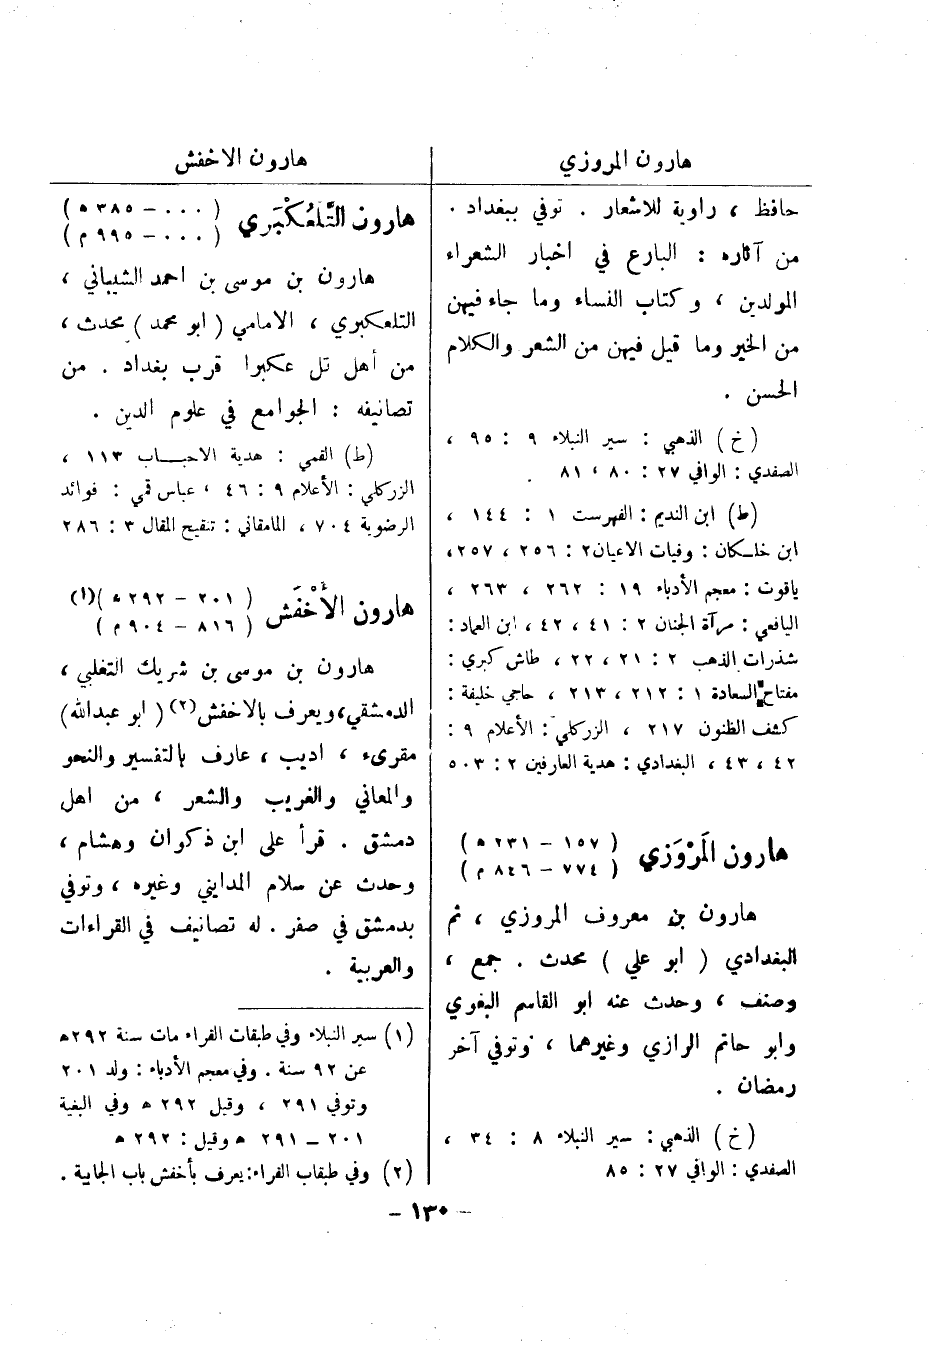 هارون المروزي
حافظ ، راوية للاشعار . توفي ببغداد .
من آثاره : البارع في اخبار الشعراء
المولدين ، و كتاب النساء وما جاء فيهن
من الخير وما قيل فيهن من الشعر والكلام
الحسن .
(خ) الذهبي : سير النبلاء ٩ : ٩٥ ،
الصفدي : الوافي ٢٧ : ٨٠ ، ٨١ .
(ط) ابن النديم : الفهرست ١ : ١٤٤ ،
ابن خلكان : وفيات الاعيان ٢ : ٢٥٦ ، ٢٥٧،
ياقوت : معجم الأدباء ١٩ : ٢٦٢ ، ٢٦٣ ،
اليافعي : مرآة الجنان ٢ : ٤١ ، ٤٢ ، ابن العماد :
شذرات الذهب ٢ : ٢١ ، ٢٢ ، طاش كبري :
مفتاح السعادة ١ : ٢١٢ ، ٢١٣ ، حاجي خليفة :
كشف الظنون ٢١٧ ، الزركلي : الأعلام ٩ :
٤٢ ، ٤٣ ، البغدادي : هدية العارفين ٢ : ٥٠٣
هارون المَرْوَزي ( ١٥٧ - ٢٣١ ه )
( ٧٧٤ - ٨٤٦ م )
هارون بن معروف المروزي ، ثم
البغدادي ( ابو علي ) محدث . جمع ،
وصنف ، وحدث عنه ابو القاسم البغوي
وابو حاتم الرازي وغيرهما ، وتوفي آخر
رمضان .
(خ) الذهبي : سير النبلاء ٨ : ٣٤ ،
الصفدي : الوافي ٢٧ : ٨٥
هارون الاخفش
هارون التَّلعُكْبَري ( ٠٠٠ - ٣٨٥ ه )
( ٠٠٠ - ٩٩٥ م )
هارون بن موسى بن احمد الشيباني ،
التلعكبري ، الامامي ( ابو محمد ) محدث ،
من أهل تل عكبرا قرب بغداد . من
تصانيفه : الجوامع في علوم الدين .
(ط) القمي : هدية الاحباب ١١٣ ،
الزركلي : الأعلام ٩ : ٤٦ ، عباس قمي : فوائد
الرضوية ٧٠٤ ، المامقاني : تنقيح المقال ٣ : ٢٨٦
هارون الأَخْفَش ( ٢٠١ - ٢٩٢ ه )(١)
( ٨١٦ - ٩٠٤ م )
هارون بن موسى بن شريك التغلبي ،
الدمشقي، ويعرف بالاخفش(٢) ( ابو عبدالله)
مقرىء ، اديب ، عارف بالتفسير والنحو
والمعاني والغريب والشعر ، من اهل
دمشق . قرأ على ابن ذكوان وهشام ،
وحدث عن سلام المدايني وغيره ، وتوفي
بدمشق في صفر . له تصانيف في القراءات
والعربية .
(١) سير النبلاء وفي طبقات القراء مات سنة ٢٩٢ه
عن ٩٢ سنة . وفي معجم الأدباء : ولد ٢٠١
وتوفي ٢٩١ ، وقيل ٢٩٢ ه وفي البغية
٢٠١ - ٢٩١ ه وقيل : ٢٩٢ ه
(٢) وفي طبقاب القراء: يعرف بأخفش باب الجابية .
- ١٣٠ -